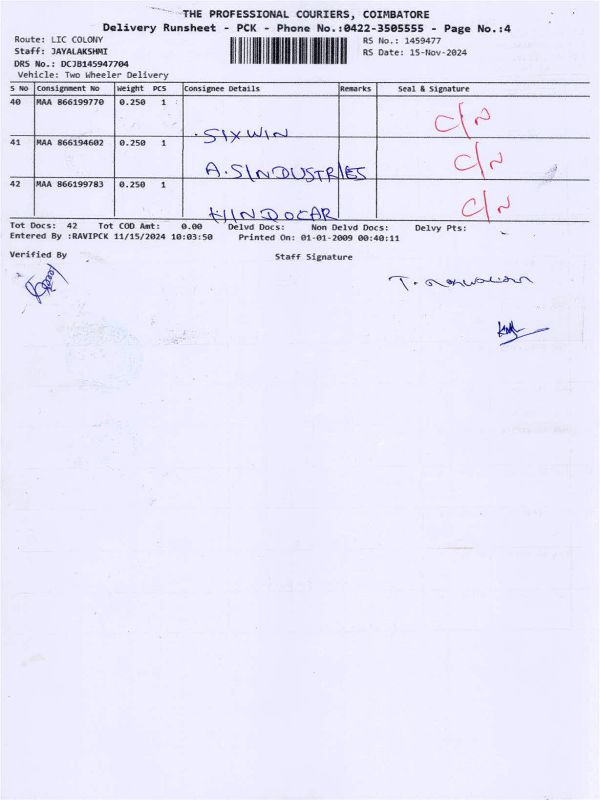 THE PROFESSIONAL COURIERS, COIMBATORE
Delivery Runsheet - PCK - Phone No.:0422-3505555 - Page No.:4
Route: LIC COLONY RS No.: 1459477
Staff: JAYALAKSHMI RS Date: 15-Nov-2024
DRS No.: DCJB145947704
Vehicle: Two Wheeler Delivery
S No Consignment No Weight PCS Consignee Details Remarks Seal & Signature
40 MAA 866199770 0.250 1 SIXWIN C/N
41 MAA 866194602 0.250 1 A.S INDUSTRIES C/N
42 MAA 866199783 0.250 1 HINDOCAR C/N
Tot Docs: 42 Tot COD Amt: 0.00 Delvd Docs: Non Delvd Docs: Delvy Pts:
Entered By :RAVIPCK 11/15/2024 10:03:50 Printed On: 01-01-2009 00:40:11
Verified By Staff Signature